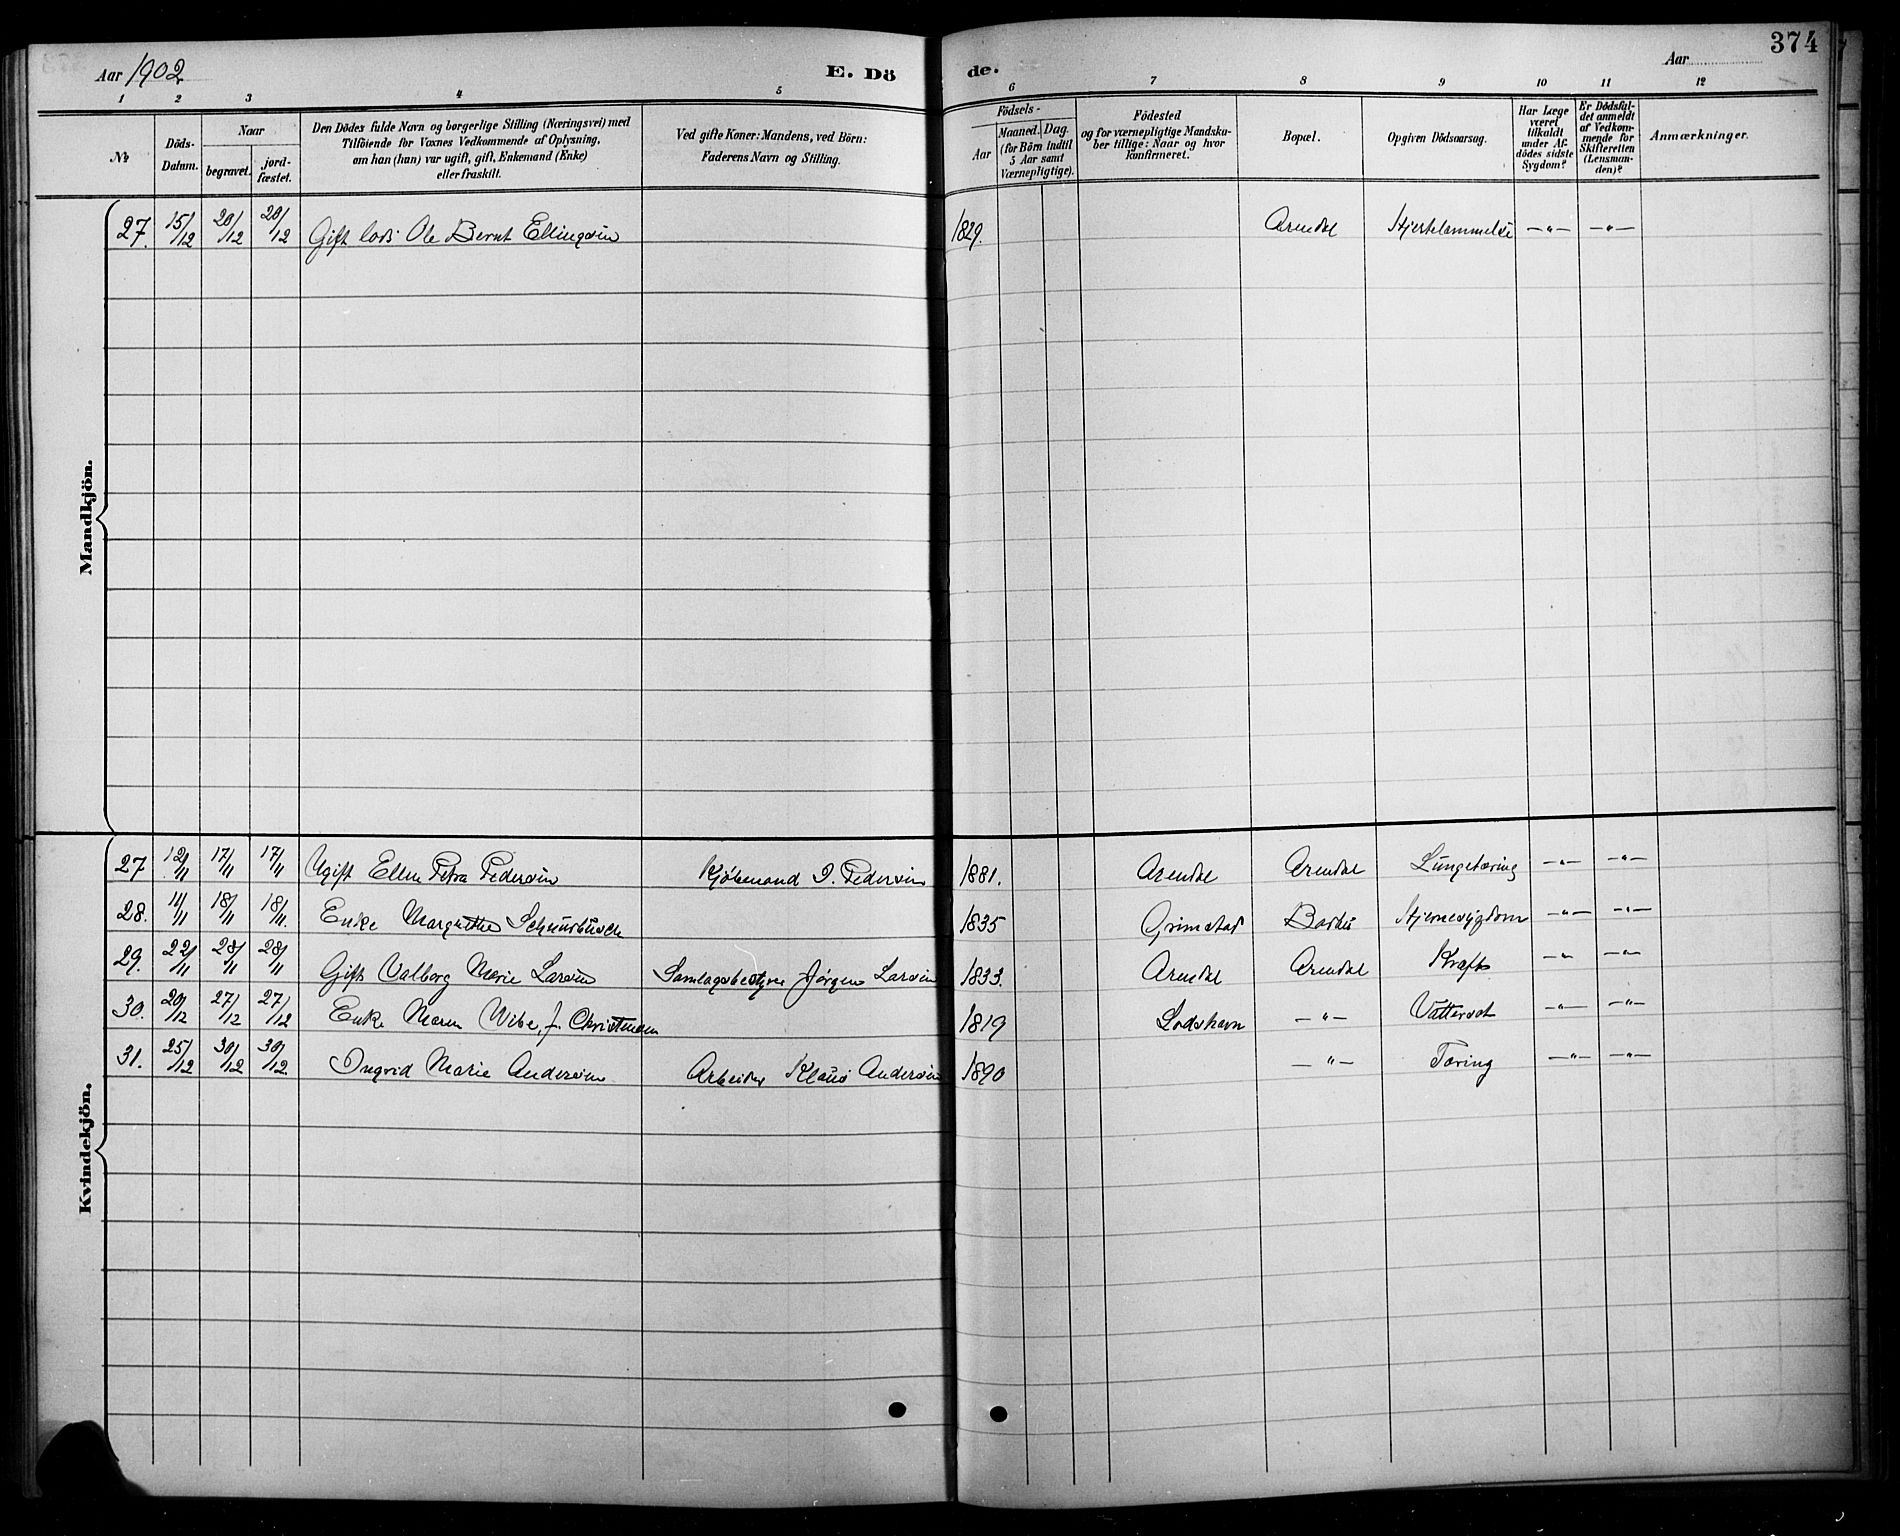 Aar 1902 E. Dö de. Aar 374
1 2 3 4 5 6 7 8 9 10 11 12
№ Döds-Datum. Naar begravet. jord-fæstet. Den Dödes fulde Navn og borgerlige Stilling (Næringsvei) med Tilföiende for Voxnes Vedkommende af Oplysning, om han (hun) var ugift, gift, Enkemand (Enke) eller fraskilt. Ved gifte Koner: Mandens, ved Börn: Faderens Navn og Stilling. Födsels- Aar Maaned. Dag. (for Börn indtil 5 Aar samt Værnepligtige). Födested og for værnepligtige Mandskaber tillige: Naar og hvor konfirmeret. Bopæl. Opgiven Dödsaarsag. Har Læge været tilkaldt under Afdödes sidste Sygdom? Er Dödsfaldet anmeldt af Vedkommende for Skifteretten (Lensmanden)? Anmærkninger.
Mandkjön.
27. 15/12 20/12 20/12 Gift lods Ole Bernt Ellingsen 1829. Arendal Hjertelammelse —"— —"—
Kvindekjön.
27 12/11 17/11 17/11 Ugift Ellen Petra Pedersen Kjöbmand O. Pedersen 1881. Arendal Arendal Lungetæring —"— —"—
28. 11/11 18/11 18/11. Enke Margrethe 1835 Grimstad Barbu Hjernesygdom —"— —"—
29. 22/11 28/11 28/11 Gift Valborg Marie Larsen Samlagsbestyrer Jørgen Larsen 1833. Arendal Arendal Kræft —"— —"—
30. 20/12 27/12 27/12 Enke Maren Wibe, f. Christensen 1819 Lodshavn —"— Vattersot —"— —"—
31. 25/12 30/12 30/12. Ingrid Marie Andersen Arbeider Klaus Andersen 1890 —"— Tæring —"— —"—